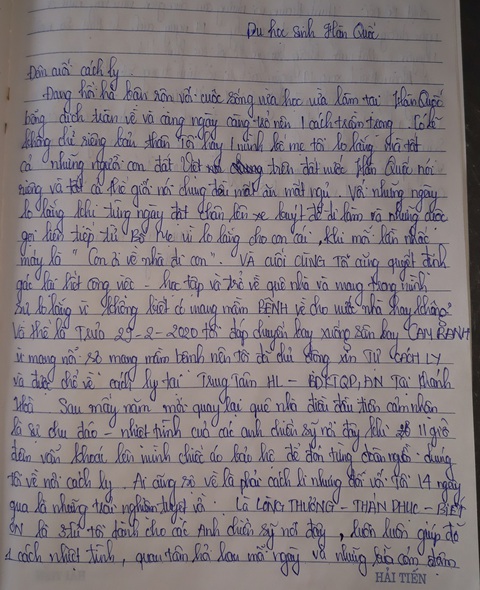 Du học sinh Hàn Quốc
Đêm cuối cách ly
Đang hối hả bận rộn với cuộc sống vừa học vừa làm tại Hàn Quốc
bỗng dịch tràn về và càng ngày càng trở nên 1 cách trầm trọng. Có lẽ
không chỉ riêng bản thân tôi hay 1 mình bố mẹ tôi lo lắng mà tất
cả những người con đất Việt trên đất nước Hàn Quốc nói
riêng và tất cả thế giới nói chung đều mất ăn mất ngủ. Với những ngày
lo lắng khi từng ngày đặt chân lên xe buýt để đi làm và những cuộc
gọi liên tiếp từ Bố Mẹ vì lo lắng cho con cái, khi mỗi lần nhấc
máy là "Con ơi về nhà đi con". VÀ CUỐI CÙNG Tôi cũng quyết định
gác lại hết công việc - học tập và trở về quê nhà và mang trong mình
sự lo lắng vì không biết có mang mầm BỆNH về cho nước nhà hay không?
Và thế là Trưa 29-2-2020 tôi đáp chuyến bay xuống sân bay CAM RANH
vì mang nỗi sợ mang mầm bệnh nên tôi đã chủ động xin TỰ CÁCH LY
và được chở về cách ly tại Trung Tâm HL - BDKTQP, ĐN Tại Khánh
Hoà. Sau mấy năm mới quay lại quê nhà điều đầu tiên cảm nhận
là sự chu đáo - nhiệt tình của các anh chiến sỹ nơi đây khi 11 giờ
đêm vẫn khoác lên mình chiếc áo bảo hộ để đón từng chân người dung
tôi về nơi cách ly. Ai cũng sợ về là phải cách li nhưng đối với tôi 14 ngày
qua là những trải nghiệm tuyệt vời. Là LÒNG THƯƠNG - THÁN PHỤC - BIẾT
ƠN là sự tôi dành cho các Anh chiến sỹ nơi đây, luôn luôn giúp đỡ
1 cách nhiệt tình, quan tâm hỏi han mỗi ngày và những bữa cơm
HẢI TIẾN